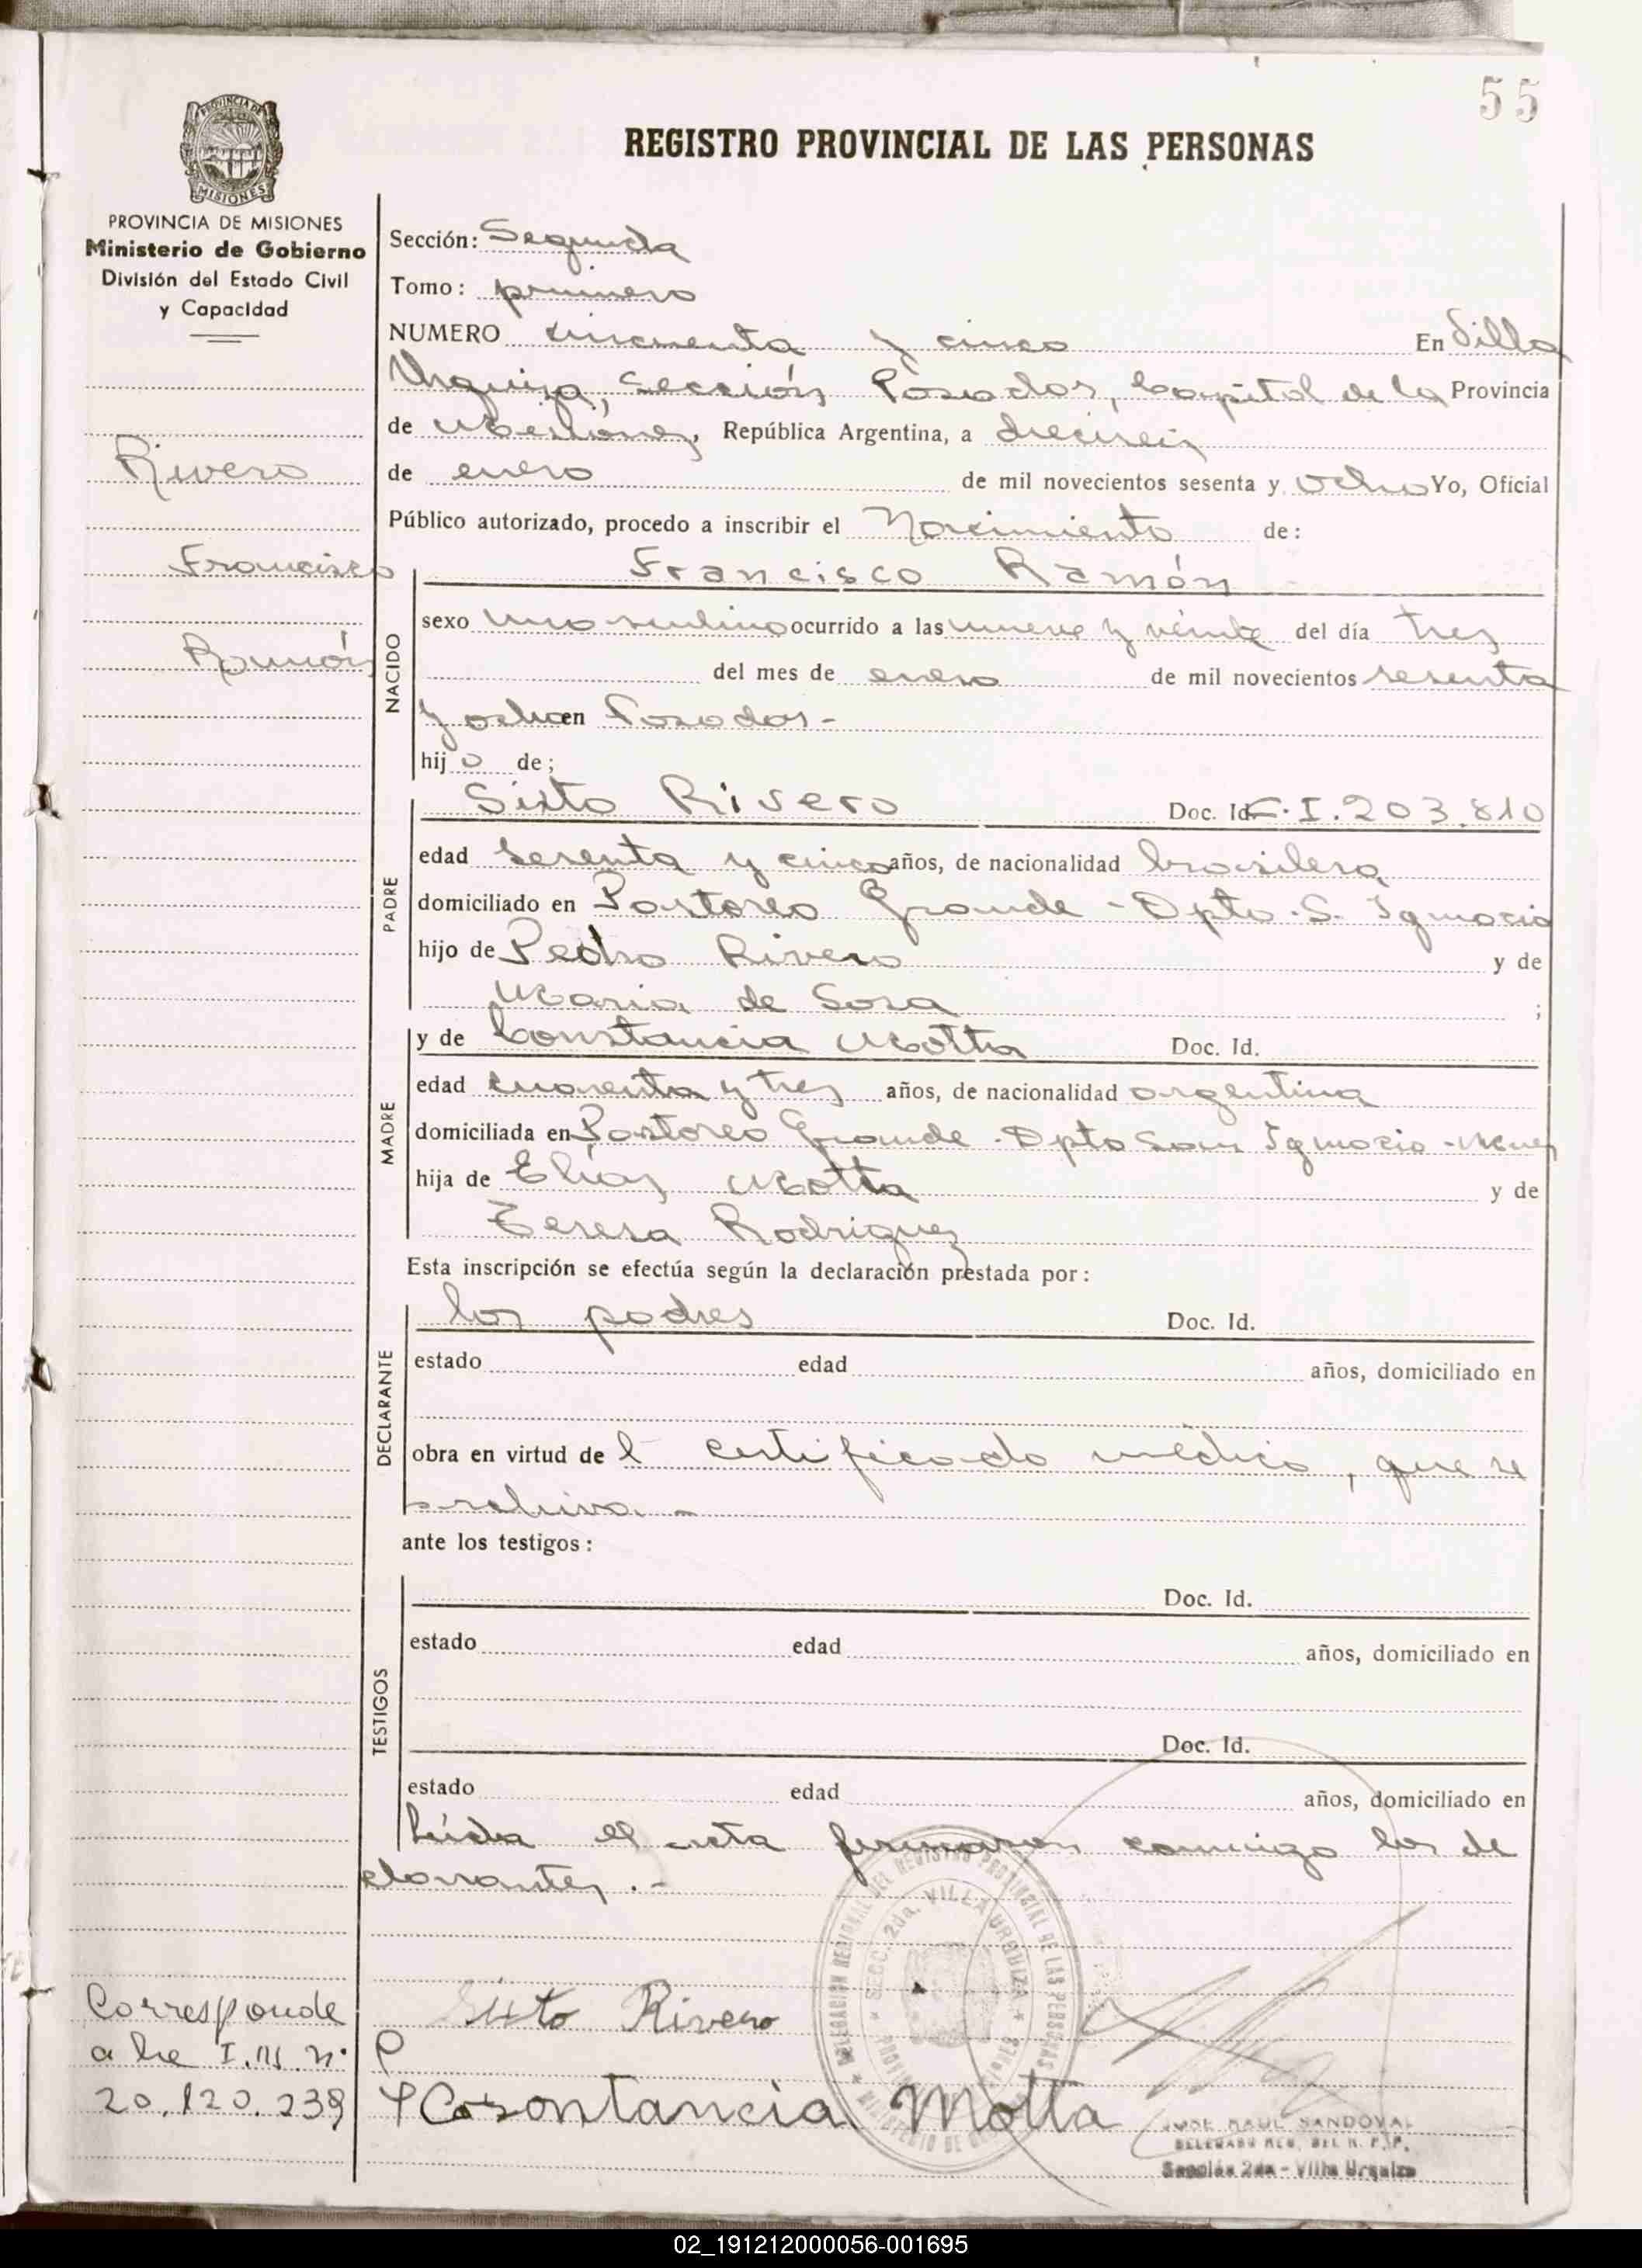 55
REGISTRO PROVINCIAL DE LAS PERSONAS
PROVINCIA DE
MISIONES
PROVINCIA DE MISIONES
Ministerio de Gobierno
División del Estado Civil
y Capacidad
Rivero
Francisco
Ramón
Sección: Segunda
Tomo: primero
NUMERO cincuenta y cinco En Villa
Urquiza, Sección Posadas, Capital de la Provincia
de Misiones, República Argentina, a dieciseis
de enero de mil novecientos sesenta y ocho Yo, Oficial
Público autorizado, procedo a inscribir el Nacimiento de:
NACIDO
Francisco Ramón
sexo masculino ocurrido a las nueve y veinte del día tres
del mes de enero de mil novecientos sesenta
y ocho en Posadas.-
hijo de;
PADRE
Sixto Rivero Doc. Id. C.I. 203.810
edad sesenta y cinco años, de nacionalidad brasilera
domiciliado en Pastoreo Grande - Dpto. S. Ignacio
hijo de Pedro Rivero y de
Maria de Sosa ;
MADRE
y de Constancia Motta Doc. Id.
edad cuarenta y tres años, de nacionalidad argentina
domiciliada en Pastoreo Grande - Dpto San Ignacio -
hija de Elías Motta y de
Teresa Rodriguez
Esta inscripción se efectúa según la declaración prestada por:
DECLARANTE
los padres Doc. Id.
estado edad años, domiciliado en
obra en virtud del certificado médico, que se
archiva.-
ante los testigos:
TESTIGOS
Doc. Id.
estado edad años, domiciliado en
Doc. Id.
estado edad años, domiciliado en
Leída el acta firmaron conmigo los de
clarantes.-
DELEGACION REGIONAL DEL REGISTRO PROVINCIAL DE LAS PERSONAS
SECC. 2da. VILLA URQUIZA
MINISTERIO DE
Corresponde
a L.I.M. n.
20.120.239
Sixto Rivero
Cosontancia Motta
RAUL SANDOVAL
DELEGADO REG. DEL R. P. P.
Sección 2da - Villa Urquiza
02_191212000056-001695